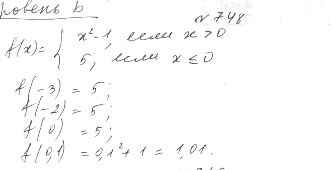 ровень b
№ 748
f(x) = { x² - 1, если x > 0
5, если x ≤ 0
f(-3) = 5;
f(-2) = 5;
f(0) = 5;
f(0,1) = 0,1² + 1 = 1,01.